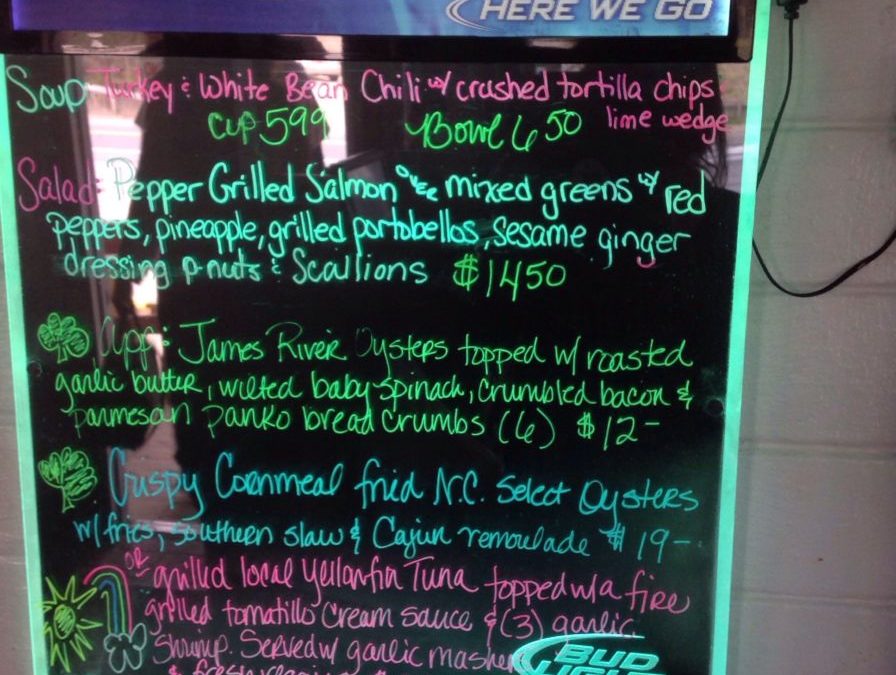 HERE WE GO
Soup: Turkey & White Bean Chili w/ crushed tortilla chips
lime wedge
Cup 5 99 Bowl 6 50
Salad: Pepper Grilled Salmon over mixed greens w/ red
peppers, pineapple, grilled portobellos, sesame ginger
dressing p-nuts & Scallions $14 50
App: James River Oysters topped w/ roasted
garlic butter, wilted baby spinach, crumbled bacon &
parmesan panko bread crumbs (6) $12-
Crispy Cornmeal fried N.C. Select Oysters
w/ fries, southern slaw & Cajun remoulade $19-
OR grilled local Yellowfin Tuna topped w/ a fire
grilled tomatillo cream sauce & (3) garlic
shrimp. Served w/ garlic mashers
BUD
LIGHT